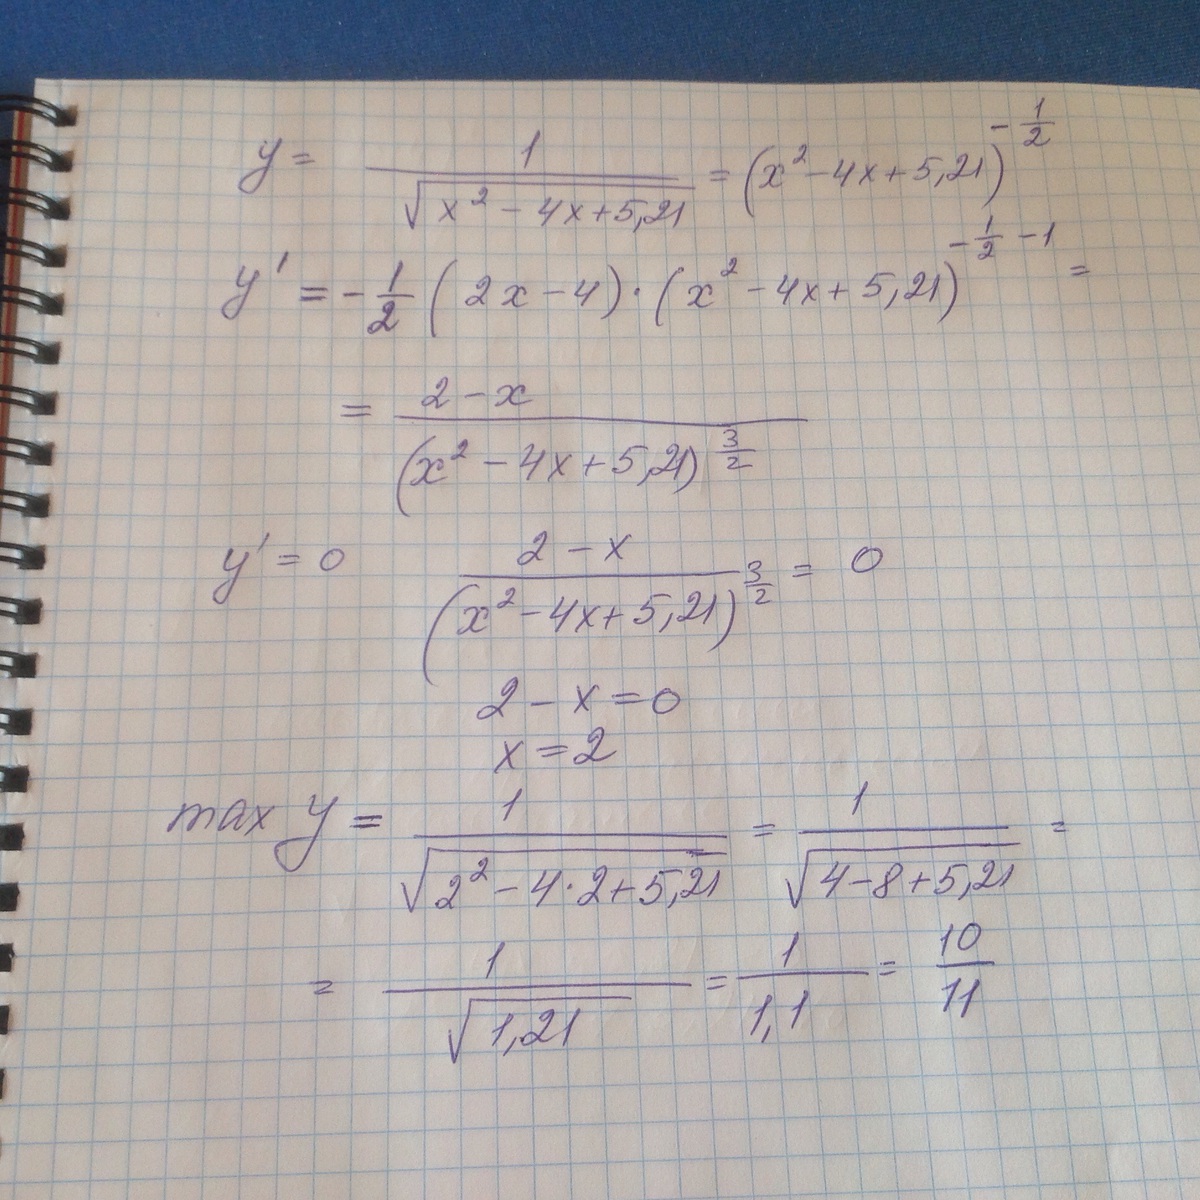 y = 1/√(x² - 4x + 5,21) = (x² - 4x + 5,21)^(-1/2)
y' = -1/2 (2x - 4) · (x² - 4x + 5,21)^(-1/2 - 1) =
= (2 - x)/(x² - 4x + 5,21)^(3/2)
y' = 0 (2 - x)/(x² - 4x + 5,21)^(3/2) = 0
2 - x = 0
x = 2
max y = 1/√(2² - 4·2 + 5,21) = 1/√(4 - 8 + 5,21) =
= 1/√(1,21) = 1/1,1 = 10/11